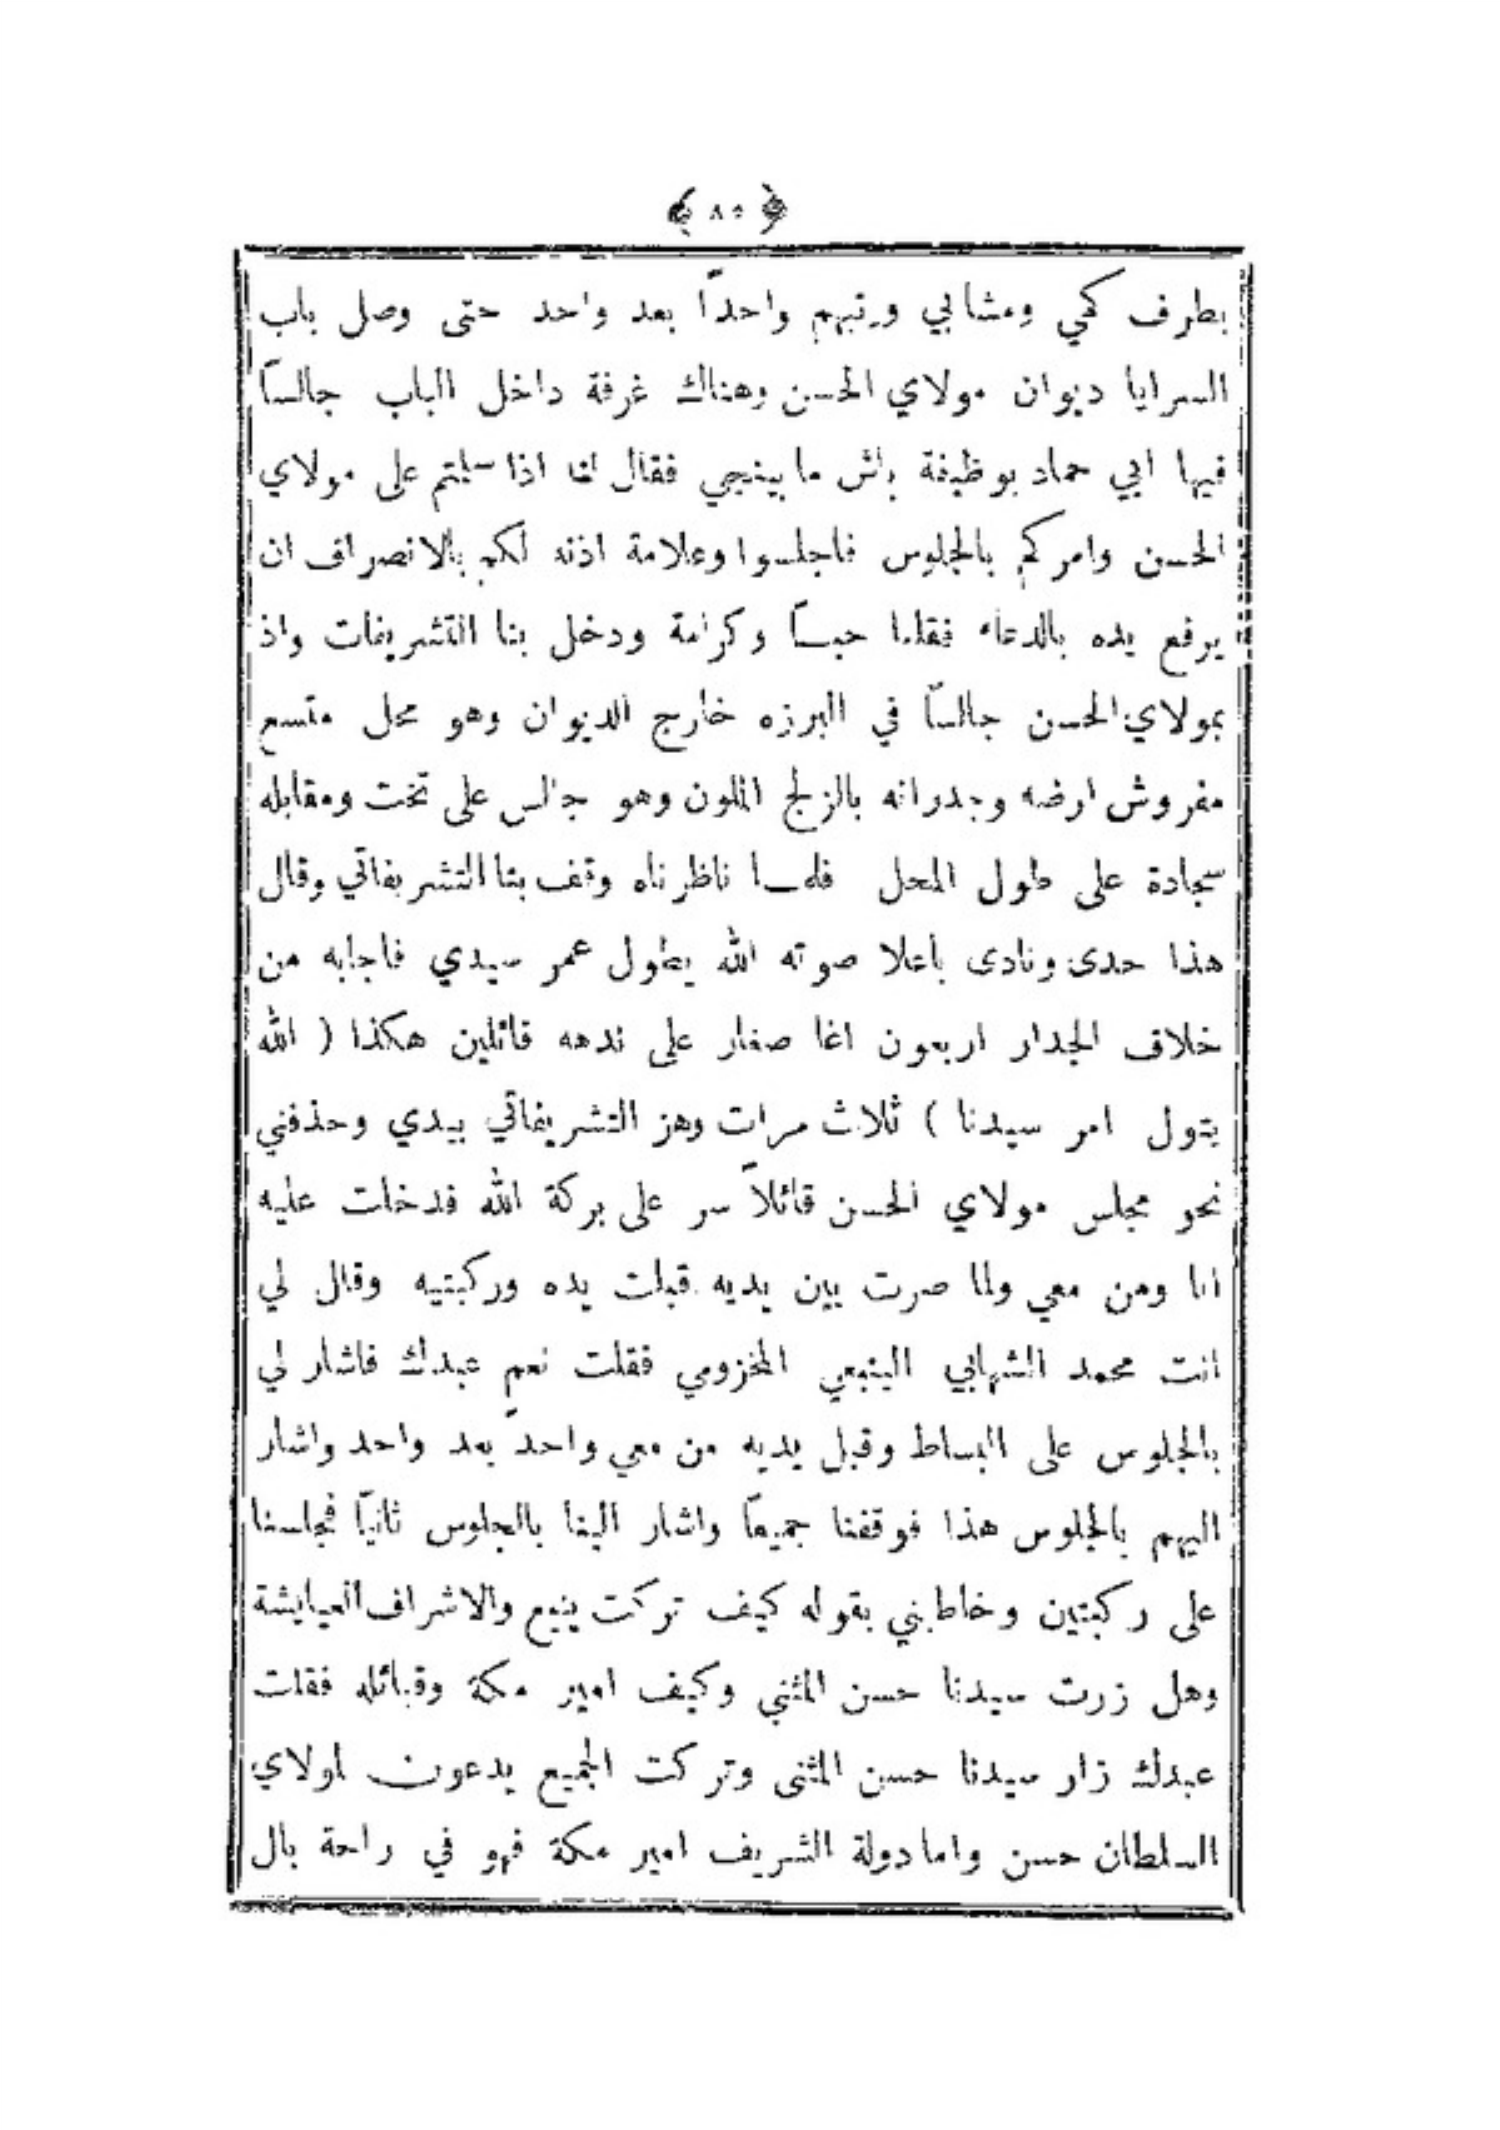 ﴿ ٨٥ ﴾
بطرف كمي ومشابي ورتبهم واحدًا بعد واحد حتى وصل باب
السرايا ديوان مولاي الحسن وهناك غرفة داخل الباب جالسًا
فيها ابي حماد بوظيفة باش مابينجي فقال لنا اذا سلمتم على مولاي
الحسن وامركم بالجلوس فاجلسوا وعلامة اذنه لكم بالانصراف ان
يرفع يده بالدعاء فقلنا حبًا وكرامة ودخل بنا التشريفات واذ
بمولاي الحسن جالسًا في البرزه خارج الديوان وهو محل متسع
مفروش ارضه وجدرانه بالزلج الملون وهو جالس على تخت ومقابله
سجادة على طول المحل فلما ناظرناه وقف بنا التشريفاتي وقال
هذا حدى ونادى باعلا صوته الله يطول عمر سيدي فاجابه من
خلاف الجدار اربعون اغا صغار على ندهه قائلين هكذا ( الله
يتول امر سيدنا ) ثلاث مرات وهز التشريفاتي بيدي وحذفني
نحو مجلس مولاي الحسن قائلاً سر على بركة الله فدخلت عليه
انا ومن معي ولما صرت بين يديه قبلت يده وركبتيه وقال لي
انت محمد الشهابي الينبعي المخزومي فقلت نعم عبدك فاشار لي
بالجلوس على البساط وقبل يديه من معي واحدً بعد واحد واشار
اليهم بالجلوس هذا فوقفنا جميعًا واشار الينا بالجلوس ثانيًا فجلسنا
على ركبتين وخاطبني بقوله كيف تركت ينبع والاشراف العيايشة
وهل زرت سيدنا حسن المثني وكيف امير مكة وقبائله فقلت
عبدك زار سيدنا حسن المثنى وتركت الجميع يدعون لمولاي
السلطان حسن واما دولة الشريف امير مكة فهو في راحة بال